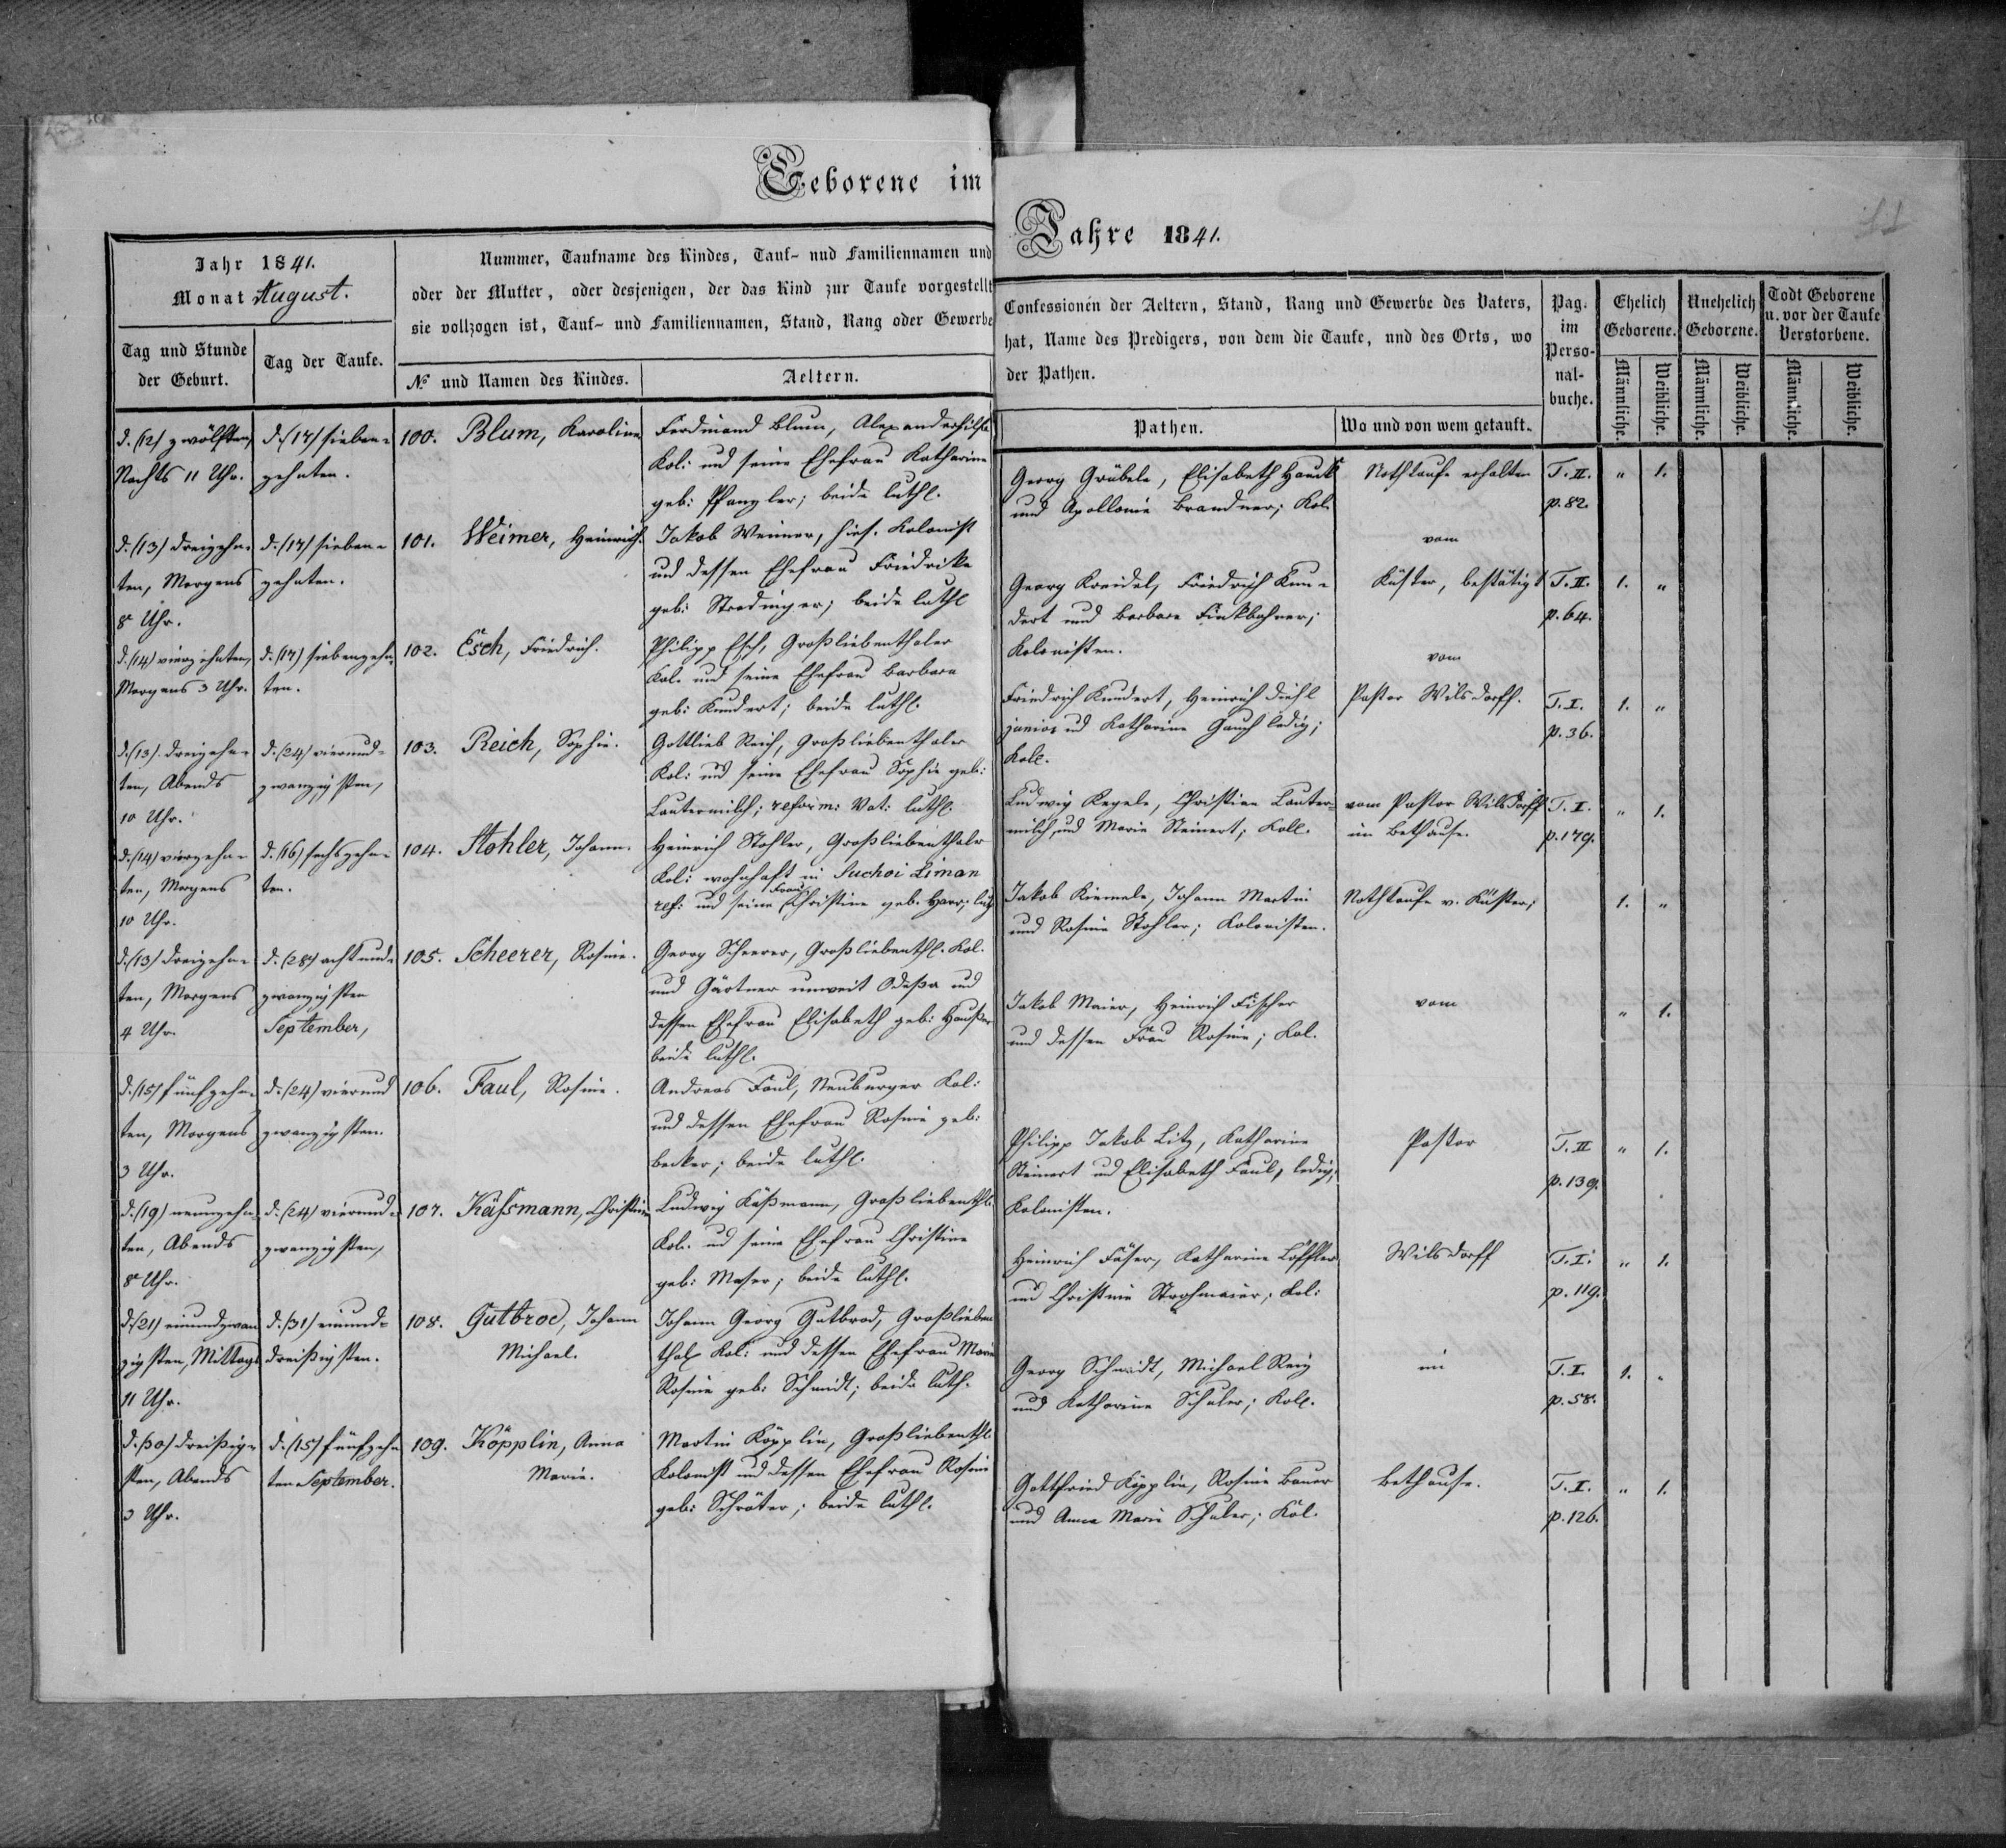 Geborene im
Jahre 1841.
11
Jahr 1841.
Monat August.
Tag und Stunde
der Geburt.
Tag der Taufe.
Nummer, Taufname des Kindes, Tauf- nud Familiennamen und
oder der Mutter, oder desjenigen, der das Kind zur Taufe vorgestellt
sie vollzogen ist, Tauf- und Familiennamen, Stand, Rang oder Gewerbe
No und Namen des Kindes.
Aeltern.
Confessionen der Aeltern, Stand, Rang und Gewerbe des Vaters,
hat, Name des Predigers, von dem die Taufe, und des Orts, wo
der Pathen.
Pathen.
Wo und von wem getauft.
Pag.
im
Perso-
nal-
buche.
Ehelich
Geborene.
Unehelich
Geborene.
Todt Geborene
u. vor der Taufe
Verstorbene.
Männliche.
Weibliche.
Männliche.
Weibliche.
Männliche.
Weibliche.
d. (12) zwölften,
Nachts 11 Uhr.
d. (17) sieben-
zehnten.
100. Blum, Karoline
Ferdinand Blum, Alexanderhilf.
Kol: und seine Ehefrau Katharine
geb: Pfanzler; beide luthl.
Georg Gräbele, Elisabeth Hauck
und Apollonie Brandner; Kol.
Nothtaufe erhalten
T. II.
p. 82.
" 1.
d. (13) dreizehn-
ten, Morgens
8 Uhr.
d. (17) sieben-
zehnten.
101. Weimer, Heinrich.
Jakob Weimer, hies. Kolonist
und dessen Ehefrau Friedrike
geb: Stradinger; beide luthl
Georg Kreidel, Friedrich Kun-
dert und Barbara Finkbohner;
Kolonisten.
vom
Küster, bestätigt
T. II.
p. 64.
1. "
d. (14) vierzehnten,
Morgens 3 Uhr.
d. (17) siebenzehn-
ten.
102. Esch, Friedrich.
Philipp Esch, Großliebenthaler
Kol. und seine Ehefrau Barbara
geb: Kundert; beide luthl.
Friedrich Kundert, Heinrich Diehl
junior und Katharine Gauch ledig;
Koll.
vom
Pastor Wilsdorff.
T. I.
p. 36.
1. "
d. (13) dreizehn-
ten, Abends
10 Uhr.
d. (24) vierund-
zwanzigsten,
103. Reich, Sophie.
Gottlieb Reich, Großliebenthaler
Kol: und seine Ehefrau Sophie geb:
Lautermilch; reform: Vat: luthl.
Ludwig Kegele, Christian Lauter-
milch, und Marie Steinert, Koll.
vom Pastor Wilsdorff
im Bethause.
T. I.
p. 179.
" 1.
d. (14) vierzehn-
ten, Morgens
10 Uhr.
d. (16) sechszehn-
ten.
104. Stohler, Johann.
Heinrich Stohler, Großliebenthaler
Kol: wohnhaft in Suchoi Liman
ref: und seine Frau Christine geb. Harr; luth
Jakob Kiemele, Johann Martin
und Rosine Stohler; Kolonisten.
Nothtaufe v. Küster;
1. "
d. (13) dreizehn-
ten, Morgens
4 Uhr.
d. (28) achtund-
zwanzigsten
September,
105. Scheerer, Rosine.
Georg Scheerer, Großliebenthl. Kol.
und Gärtner unweit Odeßa und
dessen Ehefrau Elisabeth geb:
beide luthl.
Jakob Maier, Heinrich Fischer
und dessen Frau Rosine; Kol.
vom
" 1.
d. (15) fünfzehn-
ten, Morgens
3 Uhr.
d. (24) vierund
zwanzigsten.
106. Faul, Rosine.
Andreas Faul, Neuburger Kol:
und dessen Ehefrau Rosine geb:
Becker; beide luthl.
Philipp Jakob Litz, Katharine
Steinert und Elisabeth Faul, ledig;
Kolonisten.
Pastor
T. II
p. 139.
" 1.
d. (19) neunzehn-
ten, Abends
8 Uhr.
d. (24) vierund-
zwanzigsten,
107. Käßmann, Christine
Ludwig Käßmann, Großliebenthl.
Kol. und seine Ehefrau Christine
geb: Maser; beide luthl.
Heinrich Fäser, Katharine Löffler
und Christine Strohmaier, Kol:
Wilsdorff
T. I.
p. 119.
" 1.
d. (21) einundzwan
zigsten, Mittags
11 Uhr.
d. (31) einund-
dreißigsten.
108. Gutbrod, Johann
Michael.
Johann Georg Gutbrod, Großlieben
thal Kol: und dessen Ehefrau Marie
Rosine geb: Schmidt; beide luth.
Georg Schmidt, Michael Reiz
und Katharine Schuler; Koll.
im
T. I.
p. 58.
1. "
d. (30) dreißig-
sten, Abends
3 Uhr.
d. (15) fünfzehn
ten September.
109. Köpplin, Anna
Marie.
Martin Köpplin, Großliebenthl
Kolonist und dessen Ehefrau Rosine
geb: Schröter; beide luthl.
Gottfried Köpplin, Rosine Bauer
und Anna Marie Schuler; Kol.
Bethause.
T. I.
p. 126.
" 1.